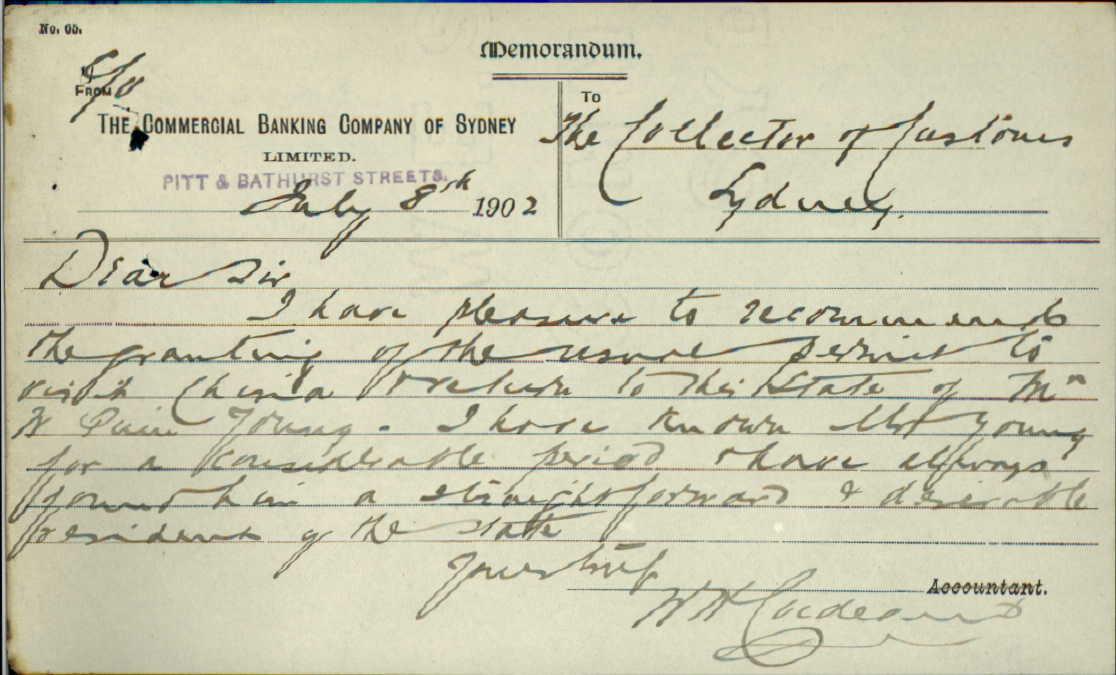 No. 65.
Memorandum.
C/o
FROM
THE COMMERCIAL BANKING COMPANY OF SYDNEY
LIMITED.
PITT & BATHURST STREETS.
July 8th 1902
To
The Collector of Customs
Sydney.
Dear Sir
I have pleasure to recommend
the granting of the usual permit to
visit China & return to this State of Mr
W Young. I have known Mr Young
for a considerable period & have always
found him a straightforward & desirable
resident of the State
Yours truly
Accountant.
W H